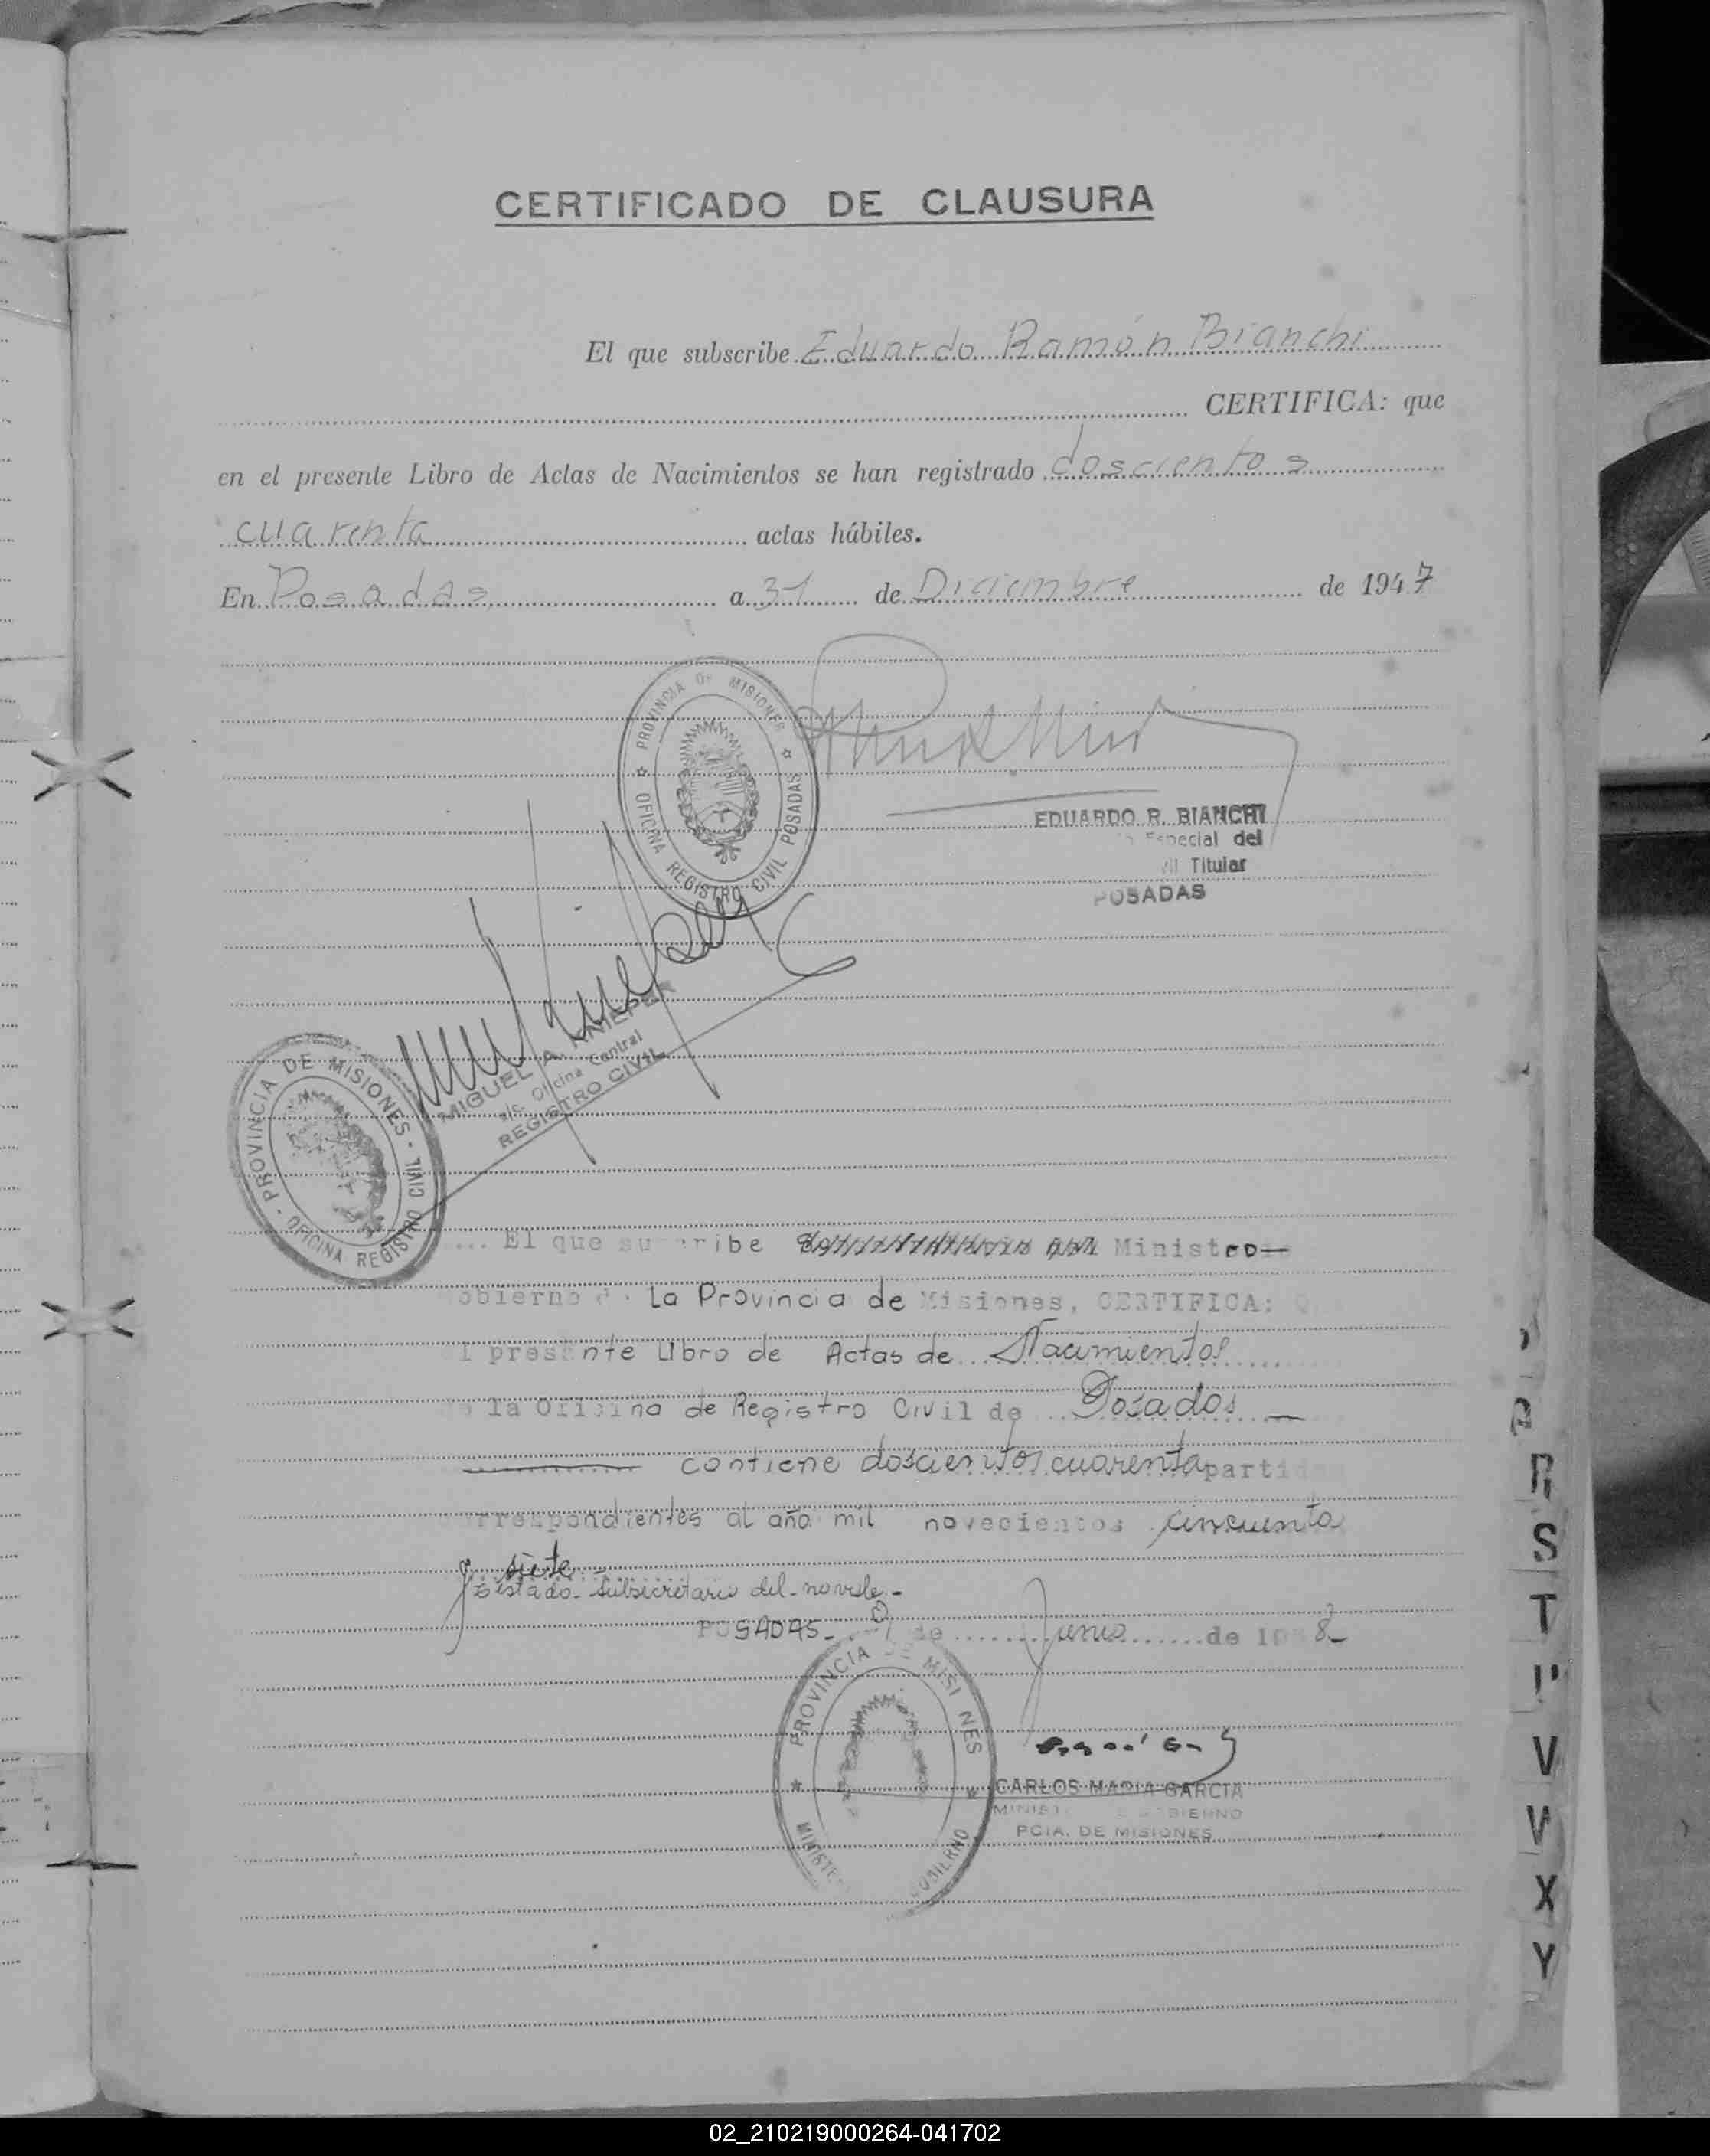 CERTIFICADO DE CLAUSURA
El que subscribe Eduardo Ramón Bianchi
CERTIFICA: que
en el presente Libro de Actas de Nacimientos se han registrado doscientos
cuarenta actas hábiles.
En Posadas a 31 de Diciembre de 1947
PROVINCIA DE MISIONES
OFICINA REGISTRO CIVIL POSADAS
EDUARDO R. BIANCHI
Especial del
Titular
POSADAS
MIGUEL A. KNIEPER
a/c. Oficina Central
REGISTRO CIVIL
PROVINCIA DE MISIONES
OFICINA REGISTRO CIVIL
El que su cribe Ministro
obierno d La Provincia de Misiones, CERTIFICA: Q
l presente Libro de Actas de Nacimientos
la Oficina de Registro Civil de Posadas
contiene doscientos cuarenta parti
correspondientes al año mil novecientos cincuenta
y siete
Testado Subsecretario del no vale
POSADAS 9 de Junio de 19 8
PROVINCIA DE MISI NES
MINISTE OBIERNO
CARLOS MARIA GARCIA
MINIST BIERNO
PCIA. DE MISIONES
R
S
T
V
W
X
Y
02_210219000264-041702